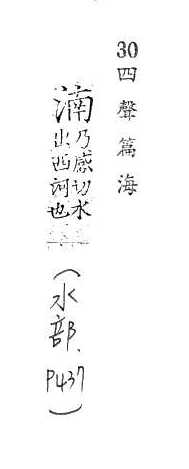 30四聲篇海
湳乃感切水
出西河也
（水部、P437）